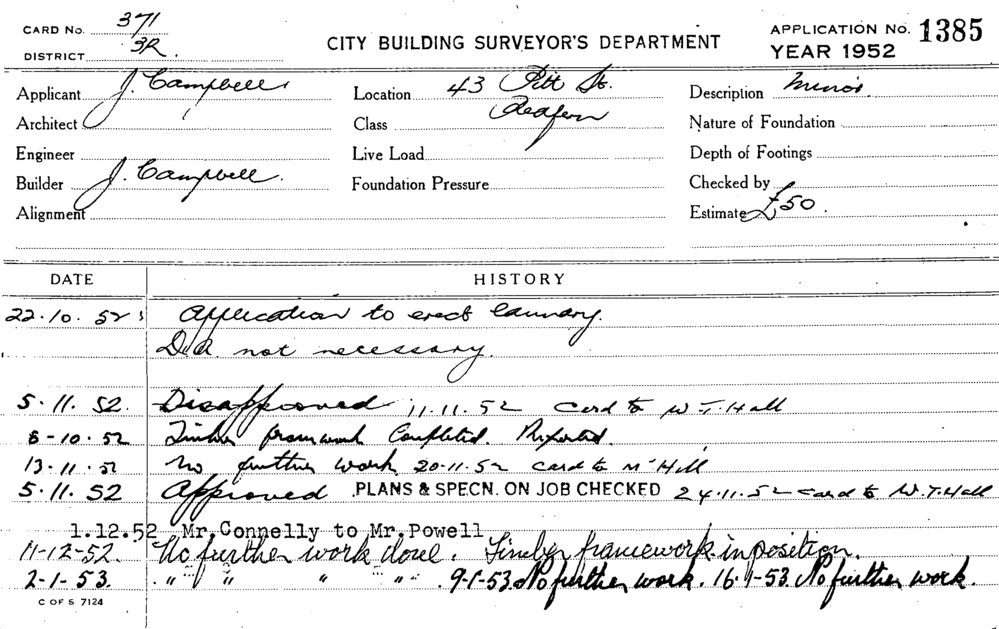 CARD No. 371
DISTRICT 3R.
CITY BUILDING SURVEYOR'S DEPARTMENT
APPLICATION No. 1385
YEAR 1952
Applicant J. Campbell
Location 43 Pitt St.
Description Minor
Architect
Class Redfern
Nature of Foundation
Engineer
Live Load
Depth of Footings
Builder J. Campbell.
Foundation Pressure
Checked by
Alignment
Estimate £50.
DATE HISTORY
22.10.52 Application to erect laundry.
D.A. not necessary.
5.11.52. Disapproved 11.11.52 card to W. T. Hall
6-10.52 Timber framework Completed. Reported.
13.11.52 No further work 20.11.52 card to Mr Hill
5.11.52 Approved PLANS & SPECN. ON JOB CHECKED 24.11.52 card to W. T. Hall
1.12.52 Mr. Connelly to Mr. Powell
11-12-52. No further work done. Timber framework in position.
2-1-53. " " " " 9-1-53. No further work. 16-1-53. No further work.
C OF S 7124